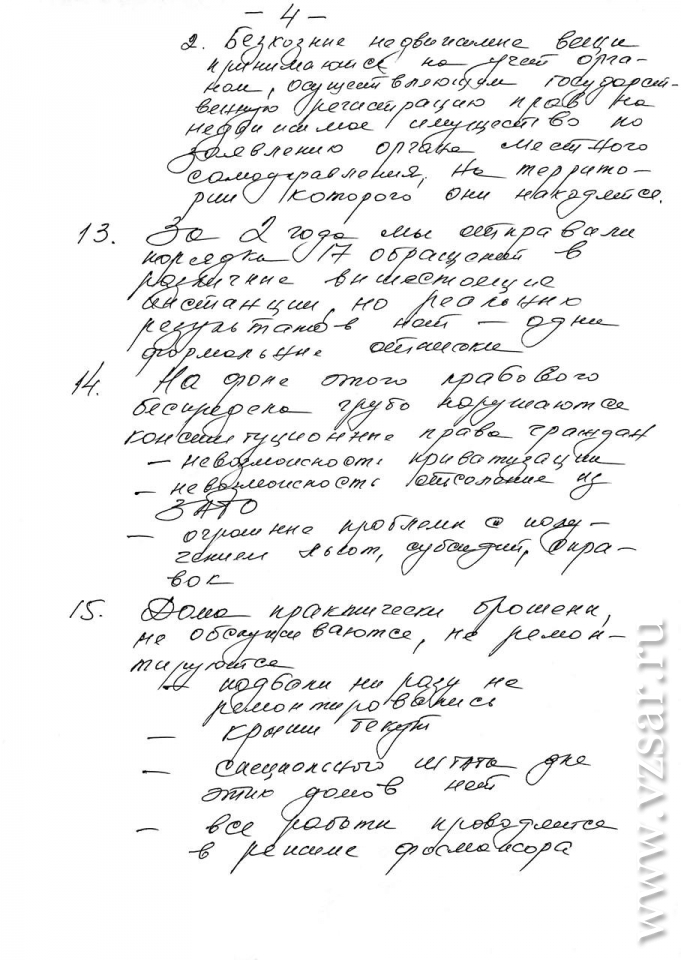 - 4 -
2. Безхозные недвижимые вещи
принимаются на учет орга-
ном, осуществляющим государст-
венную регистрацию прав на
недвижимое имущество по
заявлению органа местного
самоуправления, на террито-
рии которого они находятся.
13. За 2 года мы отправили
порядка 17 обращений в
различные вышестоящие
инстанции, но реальных
результатов нет – одни
формальные отписки
14. На фоне этого правового
беспредела грубо нарушаются
конституционные права граждан
– невозможность приватизации
– невозможность отселение из
ЗАТО
– огромные проблемы с полу-
чением льгот, субсидий, спра-
вок
15. Дома практически брошены,
не обслуживаются, не ремон-
тируются
– подвалы ни разу не
ремонтировались
– крыши текут
– специального штата для
этих домов нет
– все работы проводятся
в режиме форсмажора
www.vzsar.ru